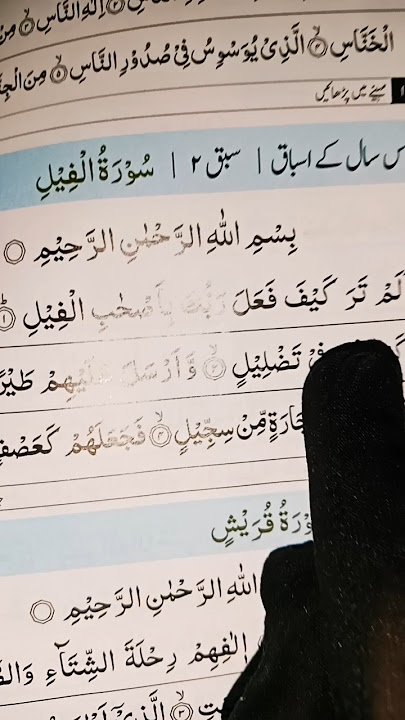 النَّاسِ ۝ اِلٰهِ النَّاسِ ۝ مِنْ
الْخَنَّاسِ ۝ الَّذِيْ يُوَسْوِسُ فِيْ صُدُوْرِ النَّاسِ ۝ مِنَ
مہینے میں پڑھائیں
سال کے اسباق | سبق ۲ | سُوْرَةُ الْفِيْلِ
بِسْمِ اللّٰهِ الرَّحْمٰنِ الرَّحِيْمِ ۝
تَرَ كَيْفَ فَعَلَ رَبُّكَ بِاَصْحٰبِ الْفِيْلِ ۝
تَضْلِيْلٍ ۝ وَّاَرْسَلَ عَلَيْهِمْ طَيْرًا
مِّنْ سِجِّيْلٍ ۝ فَجَعَلَهُمْ كَعَصْفٍ
قُرَيْشٍ
اللّٰهِ الرَّحْمٰنِ الرَّحِيْمِ ۝
اٖلٰفِهِمْ رِحْلَةَ الشِّتَآءِ
۝ الَّذِيْٓ